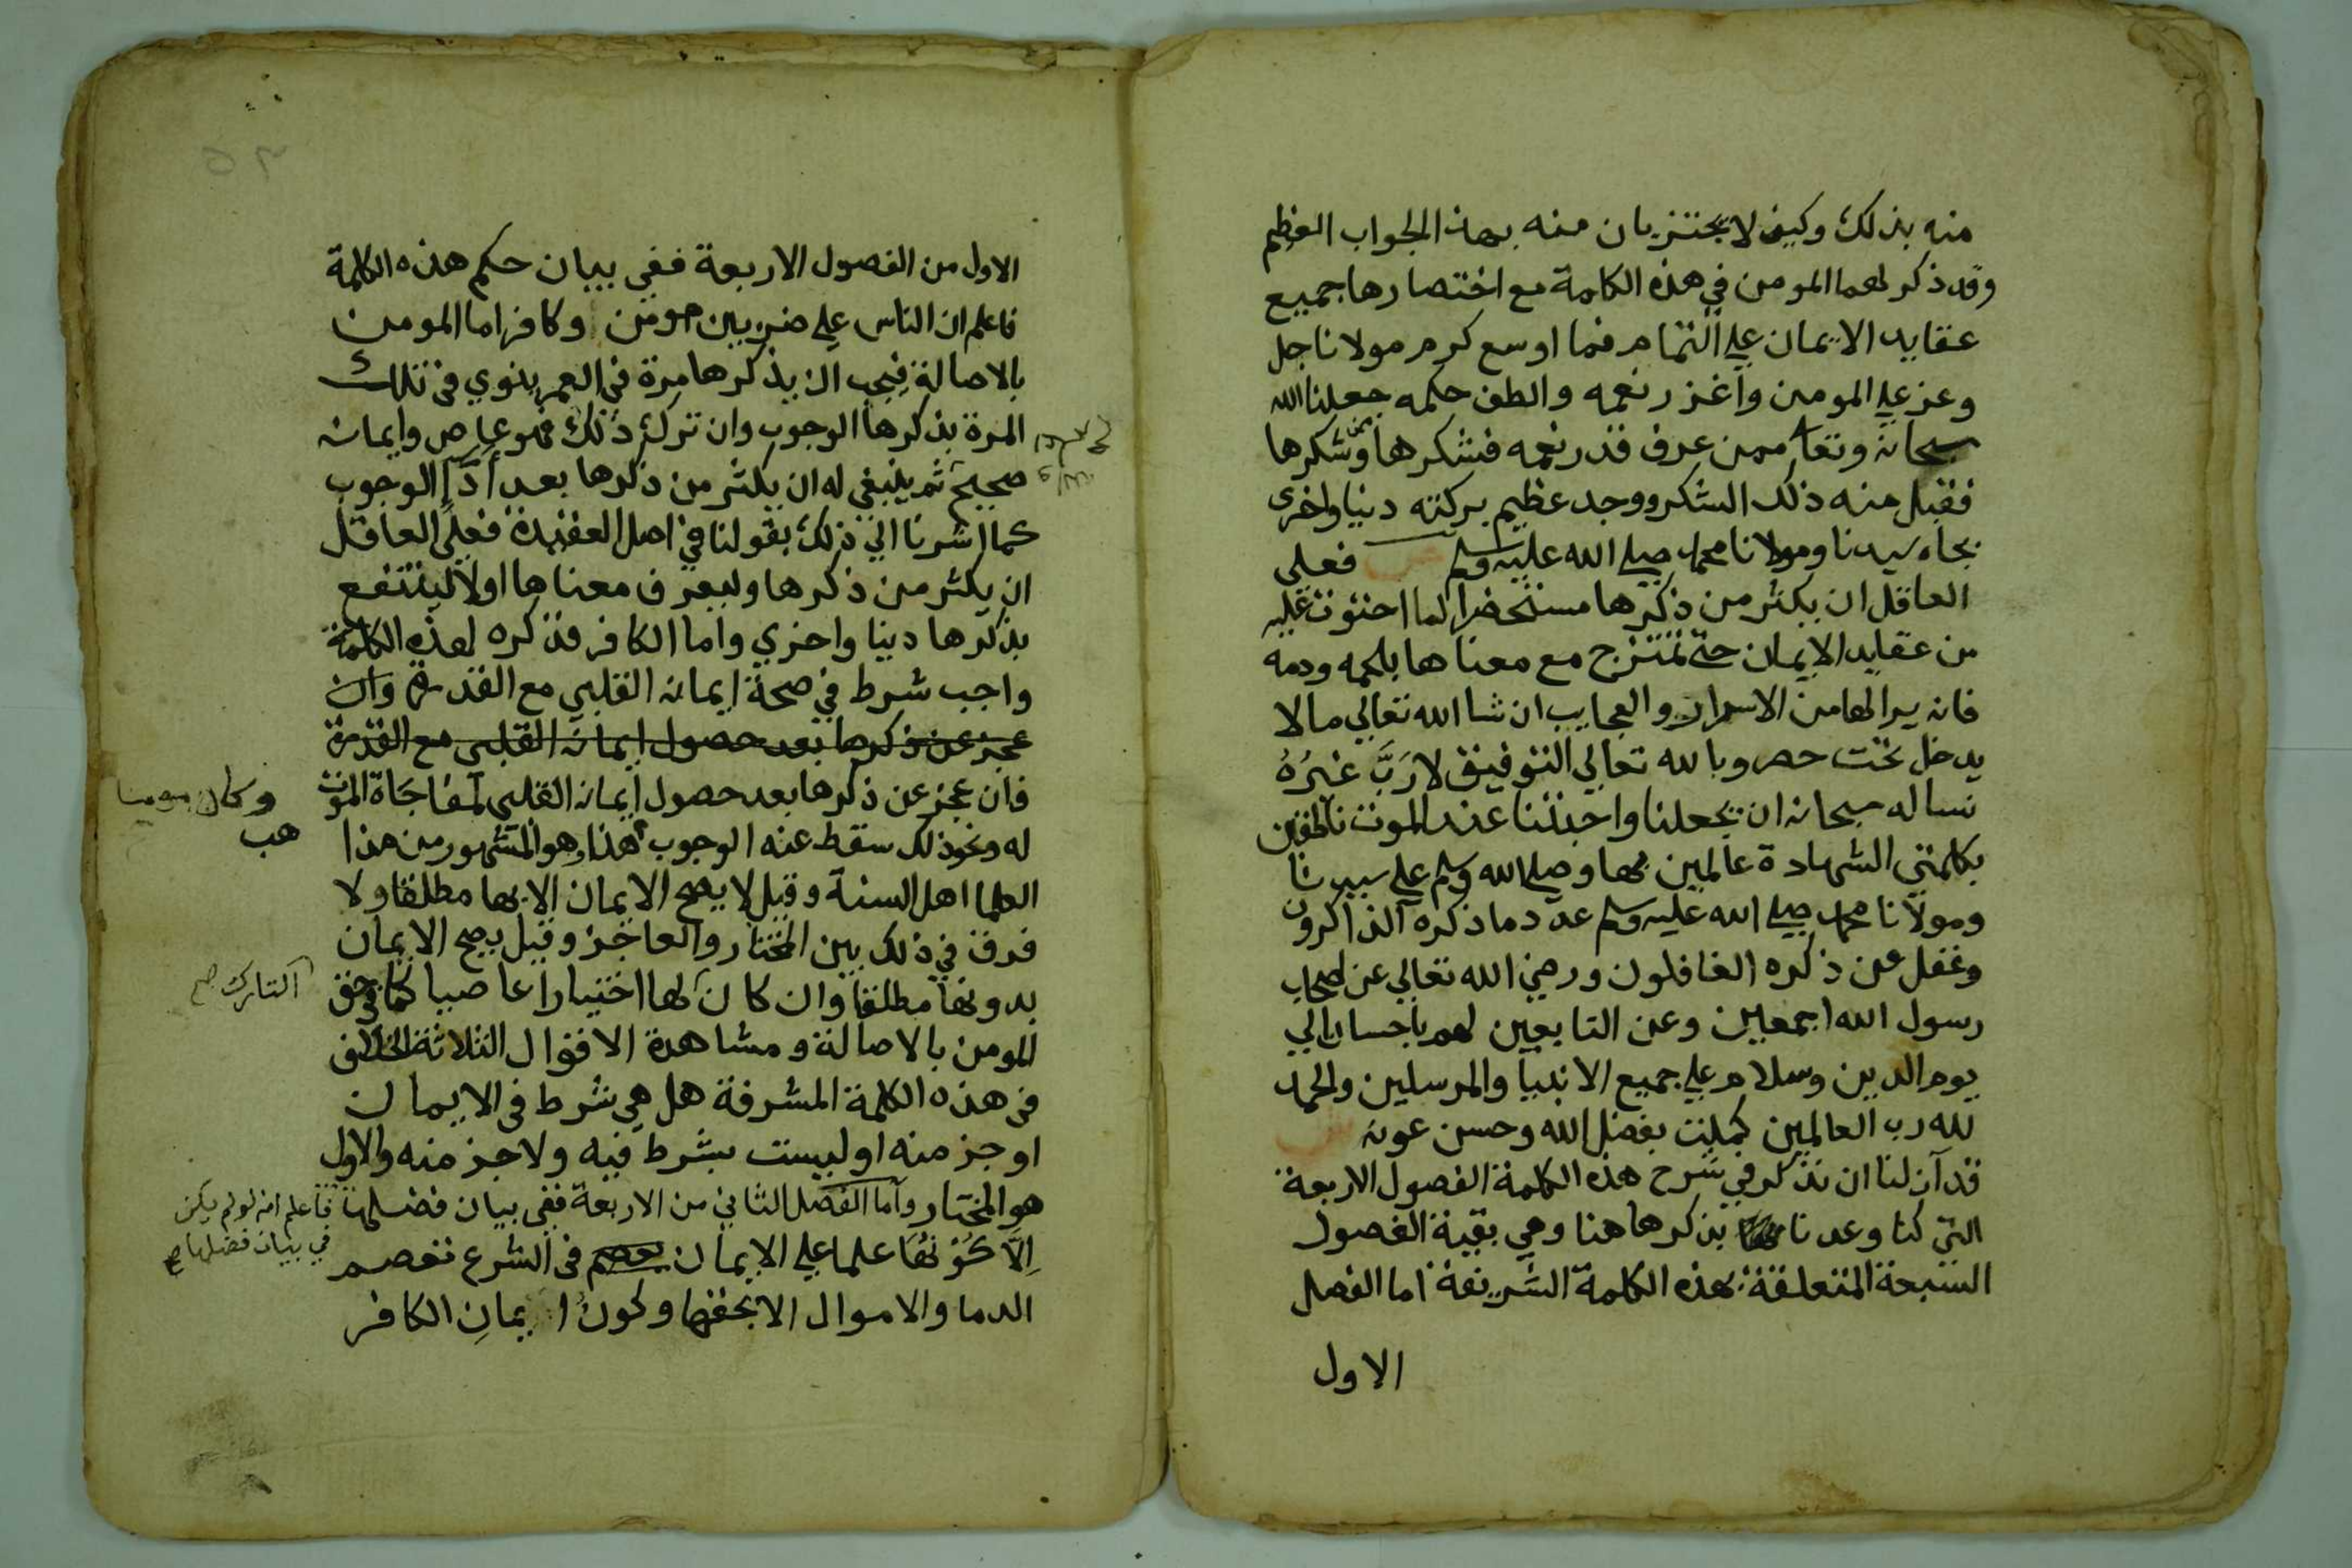 منه بذلك وكيف لا يجتزيان منه بهذا الجواب العظيم
وقد ذكر لهما المومن في هذه الكلمة مع اختصارها جميع
عقايد الايمان علي التمام فما اوسع كرم مولانا جل
وعز علي المومن واغزر نعمه والطف حكمه جعلنا الله
سبحانه وتعالي ممن عرف قدر نعمه فشكرها وشكرها
فقبل منه ذلك الشكر ووجد عظيم بركته دنيا واخرى
بجاه سيدنا ومولانا محمد صلي الله عليه وسلم ص فعلى
العاقل ان يكثر من ذكرها مستحضرا لما احتوت عليه
من عقايد الايمان حتي تمتزج مع معناها بلحمه ودمه
فانه يرا لها من الاسرار والعجايب ان شا الله تعالي مالا
يدخل تحت حصر وبالله تعالي التوفيق لا رَبَّ غيرُهُ
نساله سبحانه ان يجعلنا واحبتنا عند الموت ناطقين
بكلمتي الشهادة عالمين بها وصلي الله وسلم علي سيدنا
ومولانا محمد صلي الله عليه وسلم عدد ما ذكره الذاكرون
وغفل عن ذكره الغافلون ورضي الله تعالي عن اصحاب
رسول الله اجمعين وعن التابعين لهم باحسان الي
يوم الدين وسلام علي جميع الانبيا والمرسلين والحمد
لله رب العالمين كملت بفضل الله وحسن عونه ش
قد آن لنا ان نذكر في شرح هذه الكلمة الفصول الاربعة
التي كنا وعدنا بذكرها هنا وهي بقية الفصول
السبعة المتعلقة بهذه الكلمة الشريفة اما الفصل
الاول
٥٢
الاول من الفصول الاربعة ففي بيان حكم هذه الكلمة
فاعلم ان الناس علي ضربين مومن وكافر اما المومن
بالاصالة فيجب ان يذكرها مرة في العمر ينوي في تلك
المرة بذكرها الوجوب وان ترك ذلك فهو عاص وايمانه
صحيح ثم ينبغي له ان يكثر من ذكرها بعد أدَّا الوجوب
كما اشرنا الي ذلك بقولنا في اصل العقيدة فعلي العاقل
ان يكثر من ذكرها وليعرف معناها اولا لينتفع
بذكرها دينا واخري واما الكافر فذكره لهذه الكلمة
واجب شرط في صحة ايمانه القلبي مع القدرة وان
عجز عن ذكرها بعد حصول ايمانه القلبي مع القدرة
فان عجز عن ذكرها بعد حصول ايمانه القلبي لمفاجَاة الموت
له ونحو ذلك سقط عنه الوجوب هذا هو المشهور من هذا
وكان مومنا
هب
العلما اهل السنة وقيل لا يصح الايمان الا بها مطلقا ولا
فرق في ذلك بين المختار والعاجز وقيل يصح الايمان
بدونها مطلقا وان كان لها اختيارا عاصيا كما في حق
التارك صح
المومن بالاصالة ومشاهدة الاقوال الثلاثة الخلاف
في هذه الكلمة المشرفة هل هي شرط في الايمان
او جز منه او ليست بشرط فيه ولا جز منه والاول
هو المختار وأما الفصل الثاني من الاربعة ففي بيان فضلها
فاعلم انه لو لم يكن
في بيان فضلها صح
إلَّا كَوْنُهَا علما علي الايمان يعصم في الشرع تعصم
الدما والاموال الا بحقها وكونُ ايمانِ الكافر